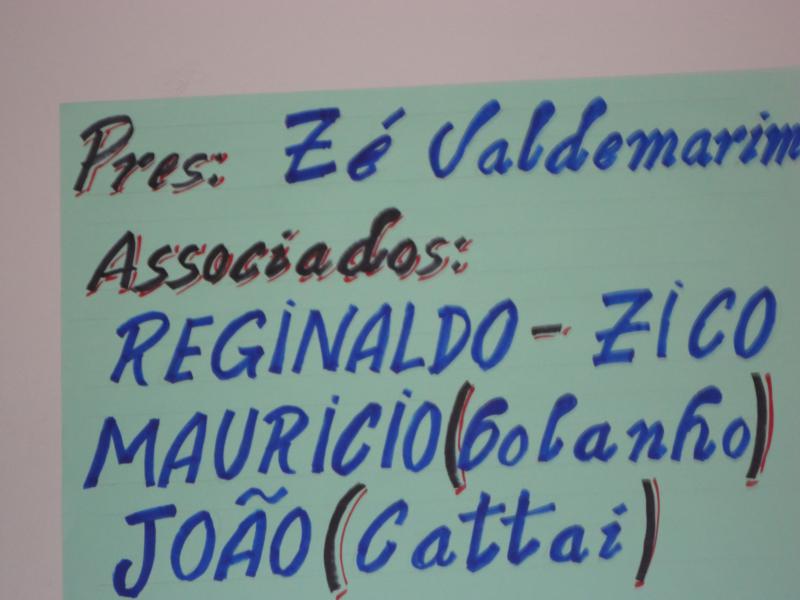 Pres: Zé Valdemarim
Associados:
REGINALDO - ZICO
MAURICIO (Golanho)
JOÃO (Cattai)